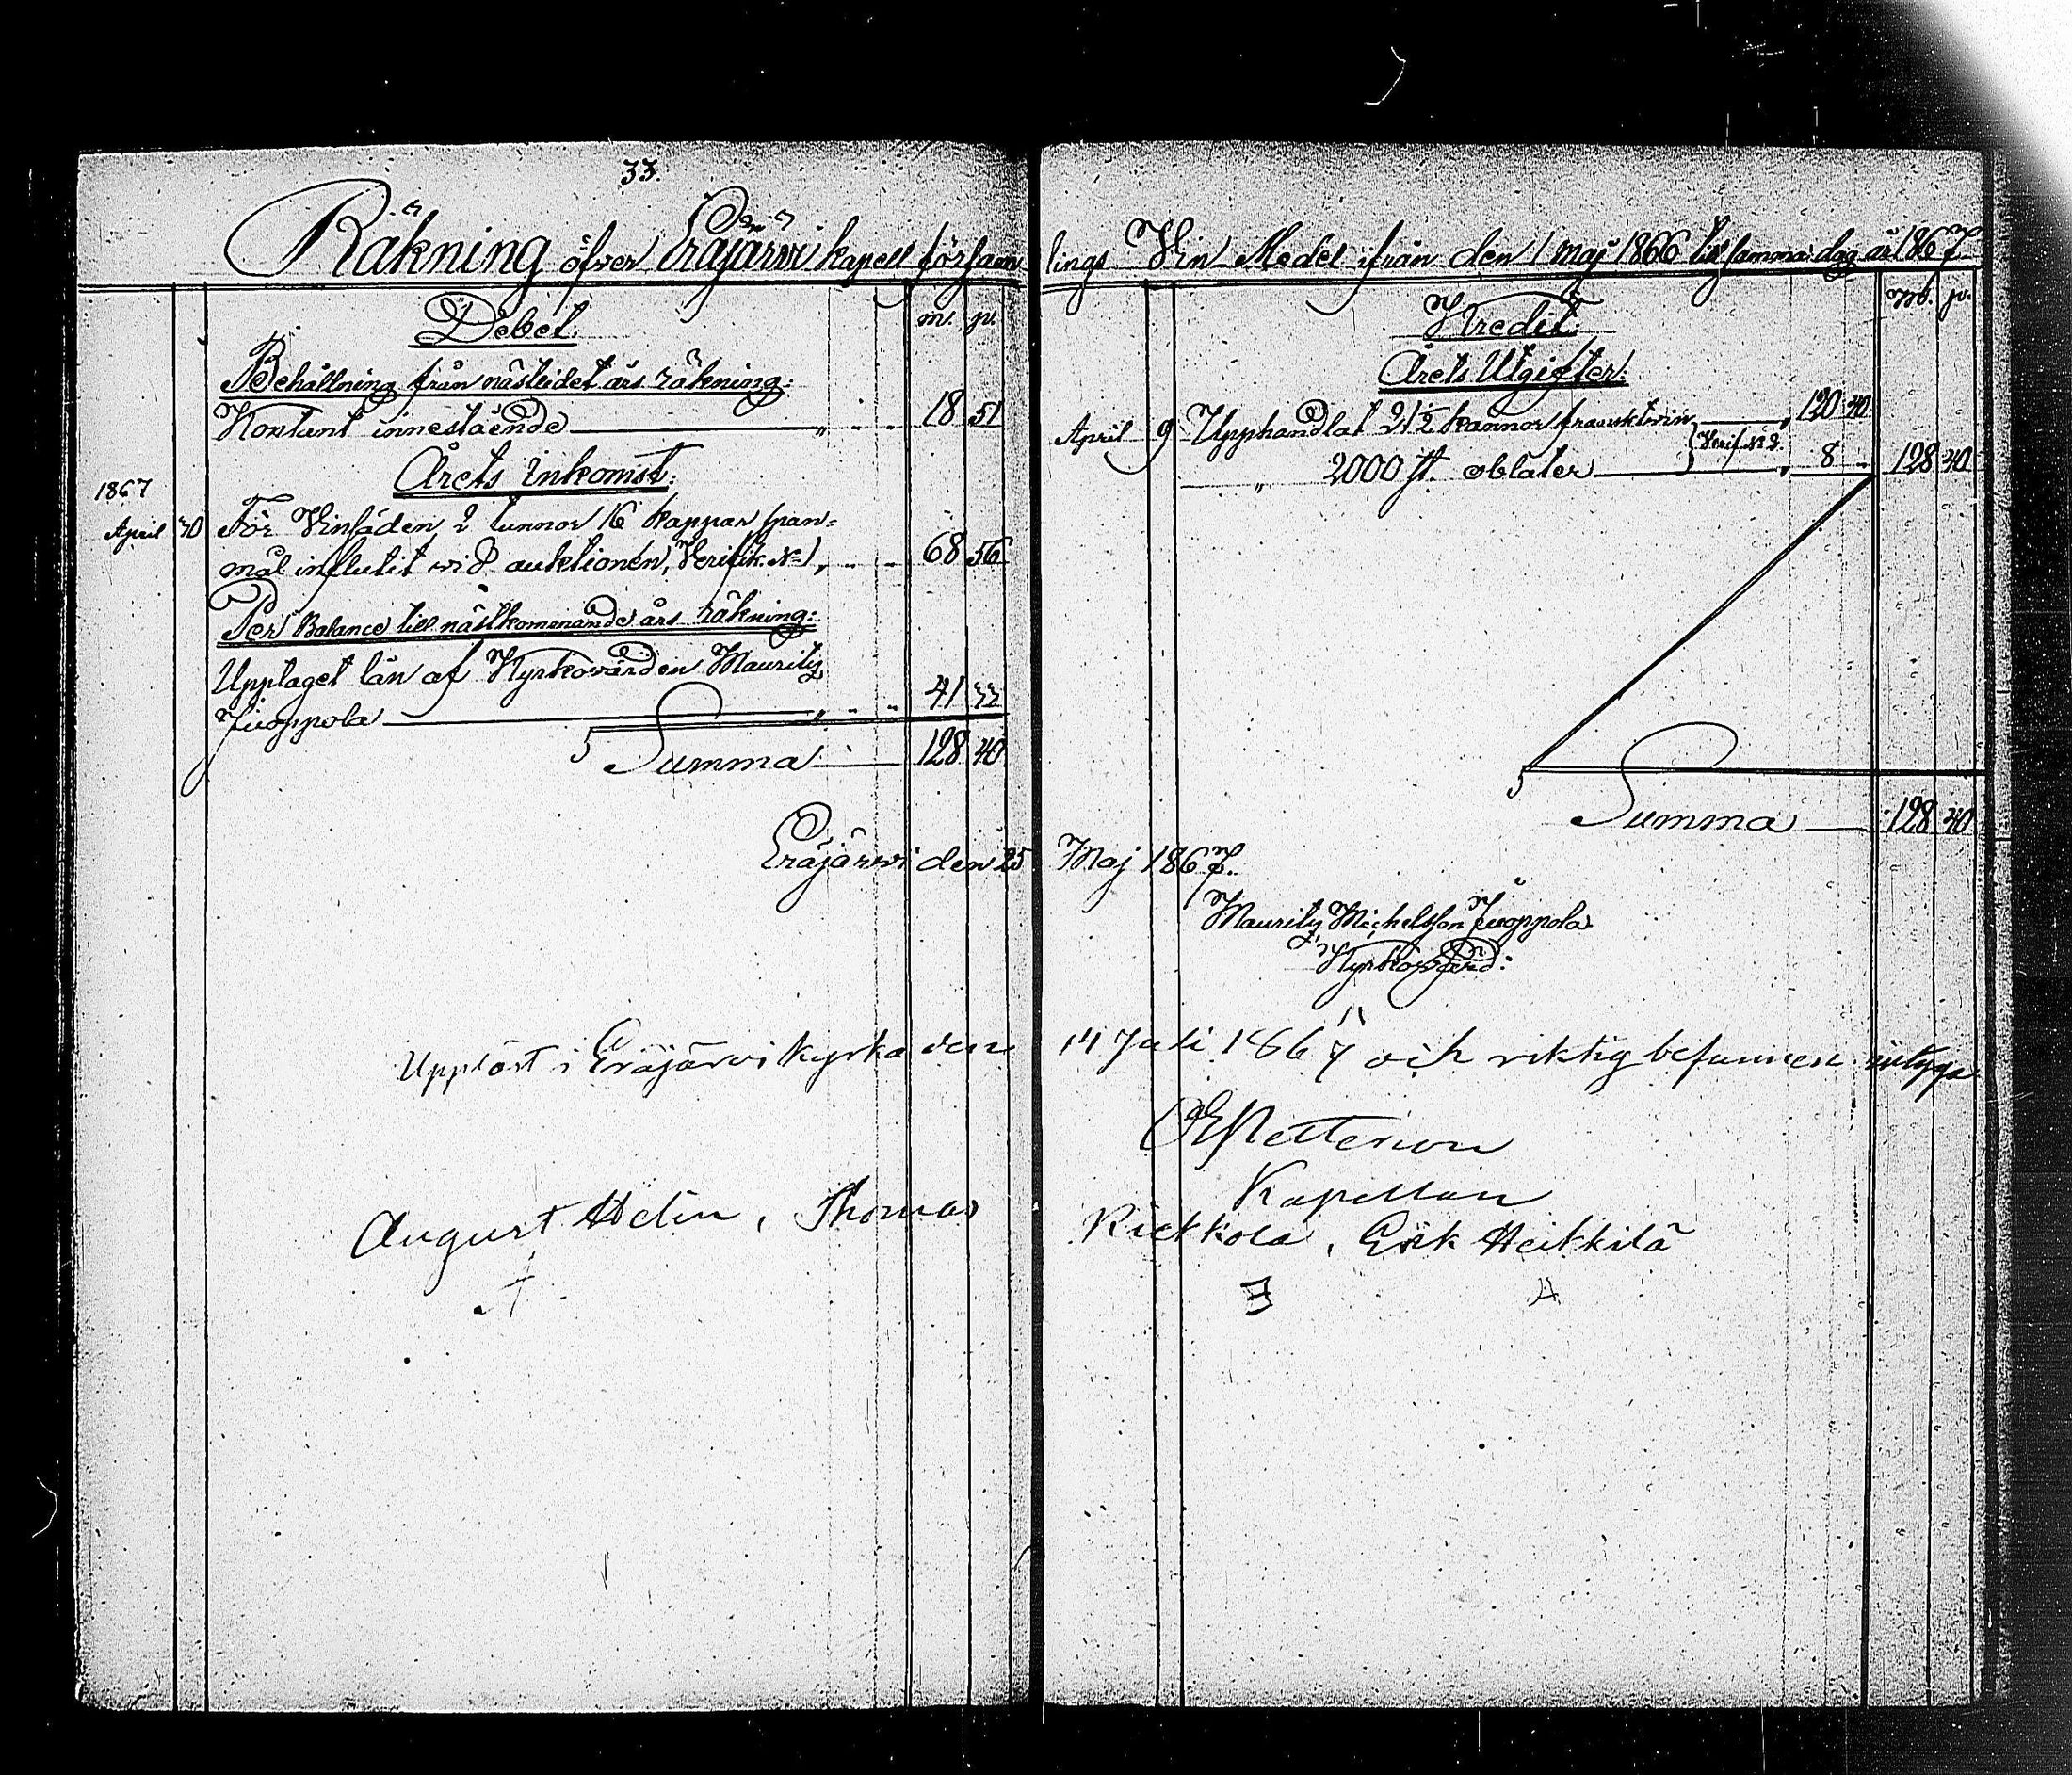 33.
Räkning öfver Eräjärwi kapell församlings Vin Medel ifrån den 1 maj 1866 till samma dag år 1867.
Debet.
m. p.
Behållning från nästledet års räkning:
Kontant innestående 18 51
Årets inkomst:
1867
April 30 För Vinsäden 2 tunnor 16 kappar span-
mål influtit wid auktionen, Verifik. № 1 68 56
Per Balance till nästkommande års räkning:
Upptaget lån af Kyrkovärden Mauritz
Juoppola 41 33
Summa 128 40
Kredit.
m. p.
Årets Utgifter:
April 9 Upphandlat 21½ kannor fransktwin 120 40
Verif. № 2.
" 2000 st. oblater 8 " 128 40
Summa 128 40
Eräjärwi den 25 Maj 1867.
Mauritz Michelsson Juoppola
Kyrkovärd:
Uppläst i Eräjärvi kyrka den 14 Juli 1867 och riktig befunnen intyga
Petterson
Kapellan
August Helin, Thomas Riekkola, Erik Heikkilä